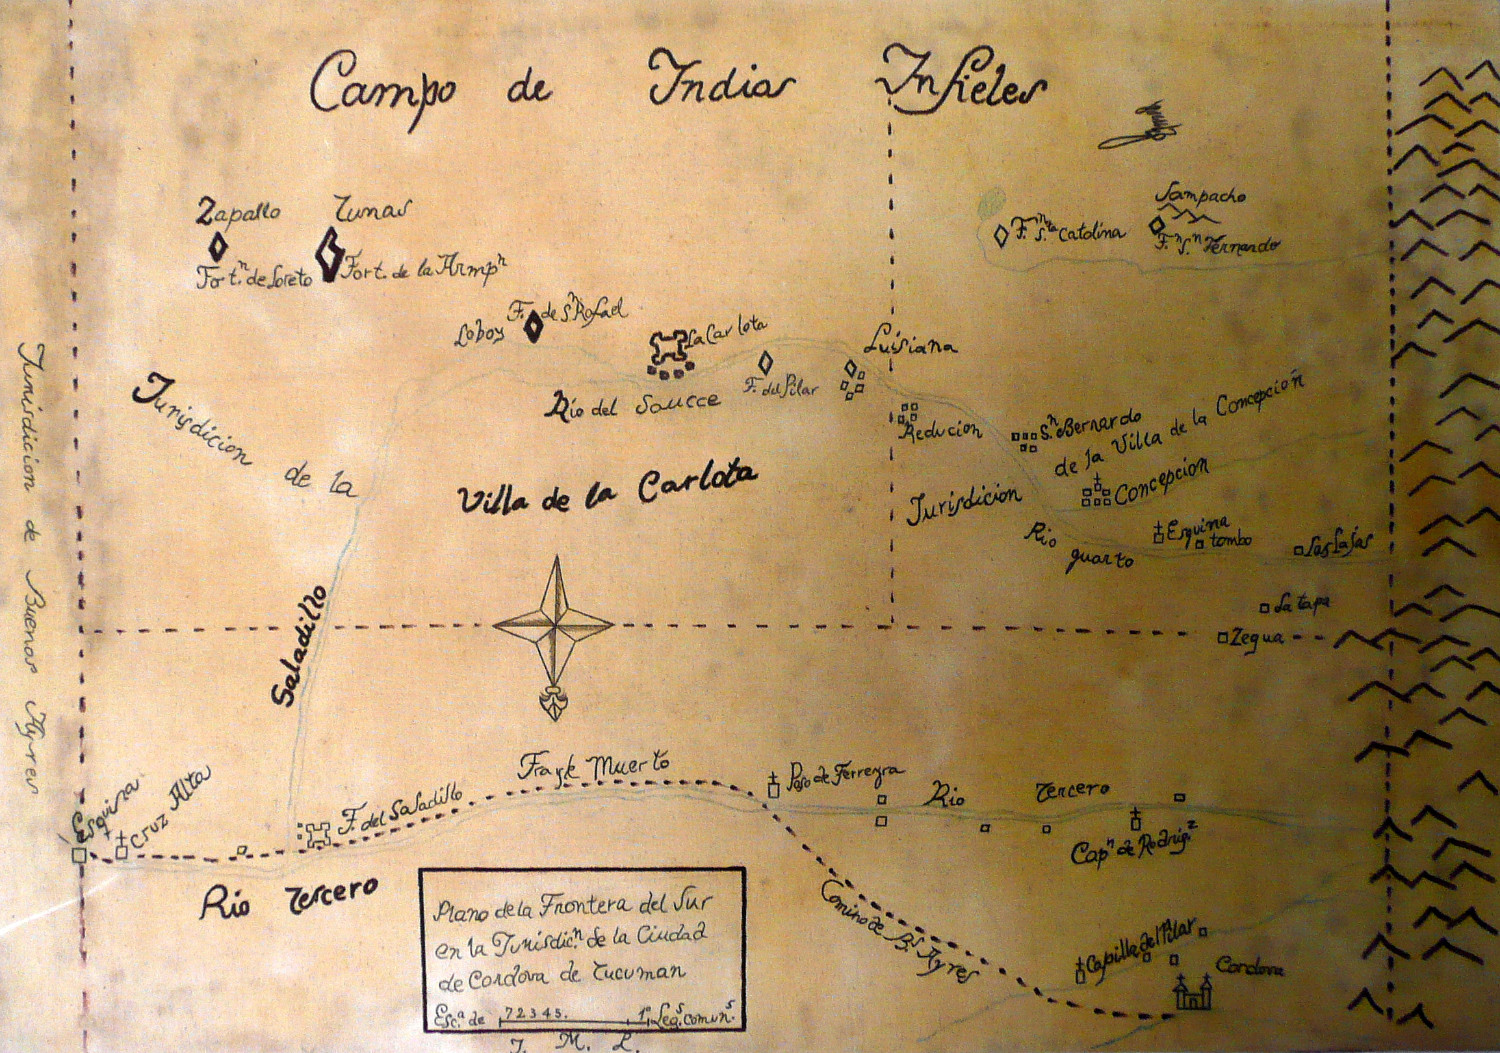 Campo de Indios Infieles
Zapallo
Fort.n de Loreto
Tunas
Fort. de la Armpn
F.n S.ta Catalina
Sampacho
F.n S.n Fernando
Loboy
F. de S.n Rafael
La Carlota
F. del Pilar
Luisiana
Rio del Saucce
Reducion
S.n Bernardo
Jurisdicion de la
Villa de la Carlota
Jurisdicion
de la Villa de la Concepción
Concepcion
Rio quarto
Esquina
tombo
Las Lajas
La tapa
Zegua
Jurisdicion de Buenos Ayres
Saladillo
Esquina
Cruz Alta
F. del Saladillo
Frayle Muerto
Paso de Ferreyra
Rio Tercero
Capn de Rodrigz
Rio Tercero
Camino de Bs Ayres
Capilla del Pilar
Cordova
Plano de la Frontera del Sur
en la Jurisdic.n de la Ciudad
de Cordova de Tucuman
Esc.a de 7 2 3 4 5. Leg.s comun.s
J. M. L.